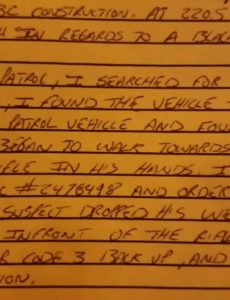 BC CONSTRUCTION. AT 2205
IN REGARDS TO A BLACK
PATROL, I SEARCHED FOR
, I FOUND THE VEHICLE
PATROL VEHICLE AND FOU
BEGAN TO WALK TOWARDS
FLE IN HIS HANDS. I
#2476498 AND ORDER
SUSPECT DROPPED HIS WE
INFRONT OF THE RIF
R CODE 3 BACK UP, AND
ION.